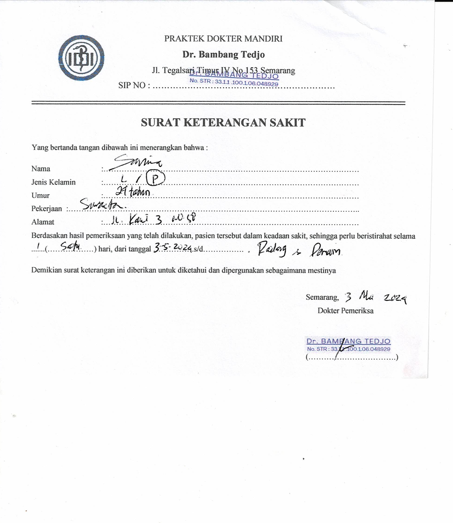 PRAKTEK DOKTER MANDIRI
Dr. Bambang Tedjo
Jl. Tegalsari Timur IV No.153 Semarang
Dr. BAMBANG TEDJO
SIP NO : No. STR : 33.1.1.100.1.06.048929
IDI
SURAT KETERANGAN SAKIT
Yang bertanda tangan dibawah ini menerangkan bahwa :
Nama :
Jenis Kelamin : L / P
Umur : 29 tahun
Pekerjaan : Swasta
Alamat : Jl. Kawi 3 no
Berdasakan hasil pemeriksaan yang telah dilakukan, pasien tersebut dalam keadaan sakit, sehingga perlu beristirahat selama
1 ( Satu ) hari, dari tanggal 3-5-2024 s/d
Demikian surat keterangan ini diberikan untuk diketahui dan dipergunakan sebagaimana mestinya
Semarang, 3 Mei 2024
Dokter Pemeriksa
Dr. BAMBANG TEDJO
No. STR : 33.1.1.100.1.06.048929